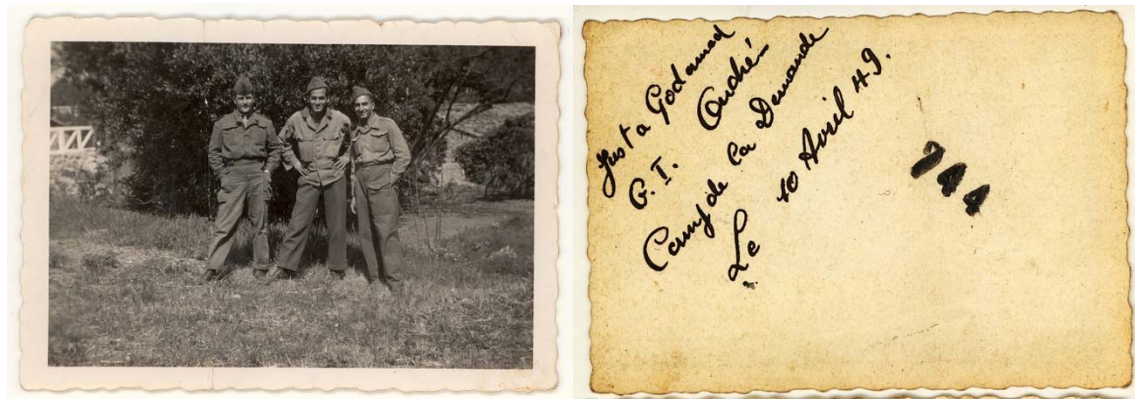 Just a Godamed
G. I. André
Camp de la Demande
Le 10 Avril 49.
744